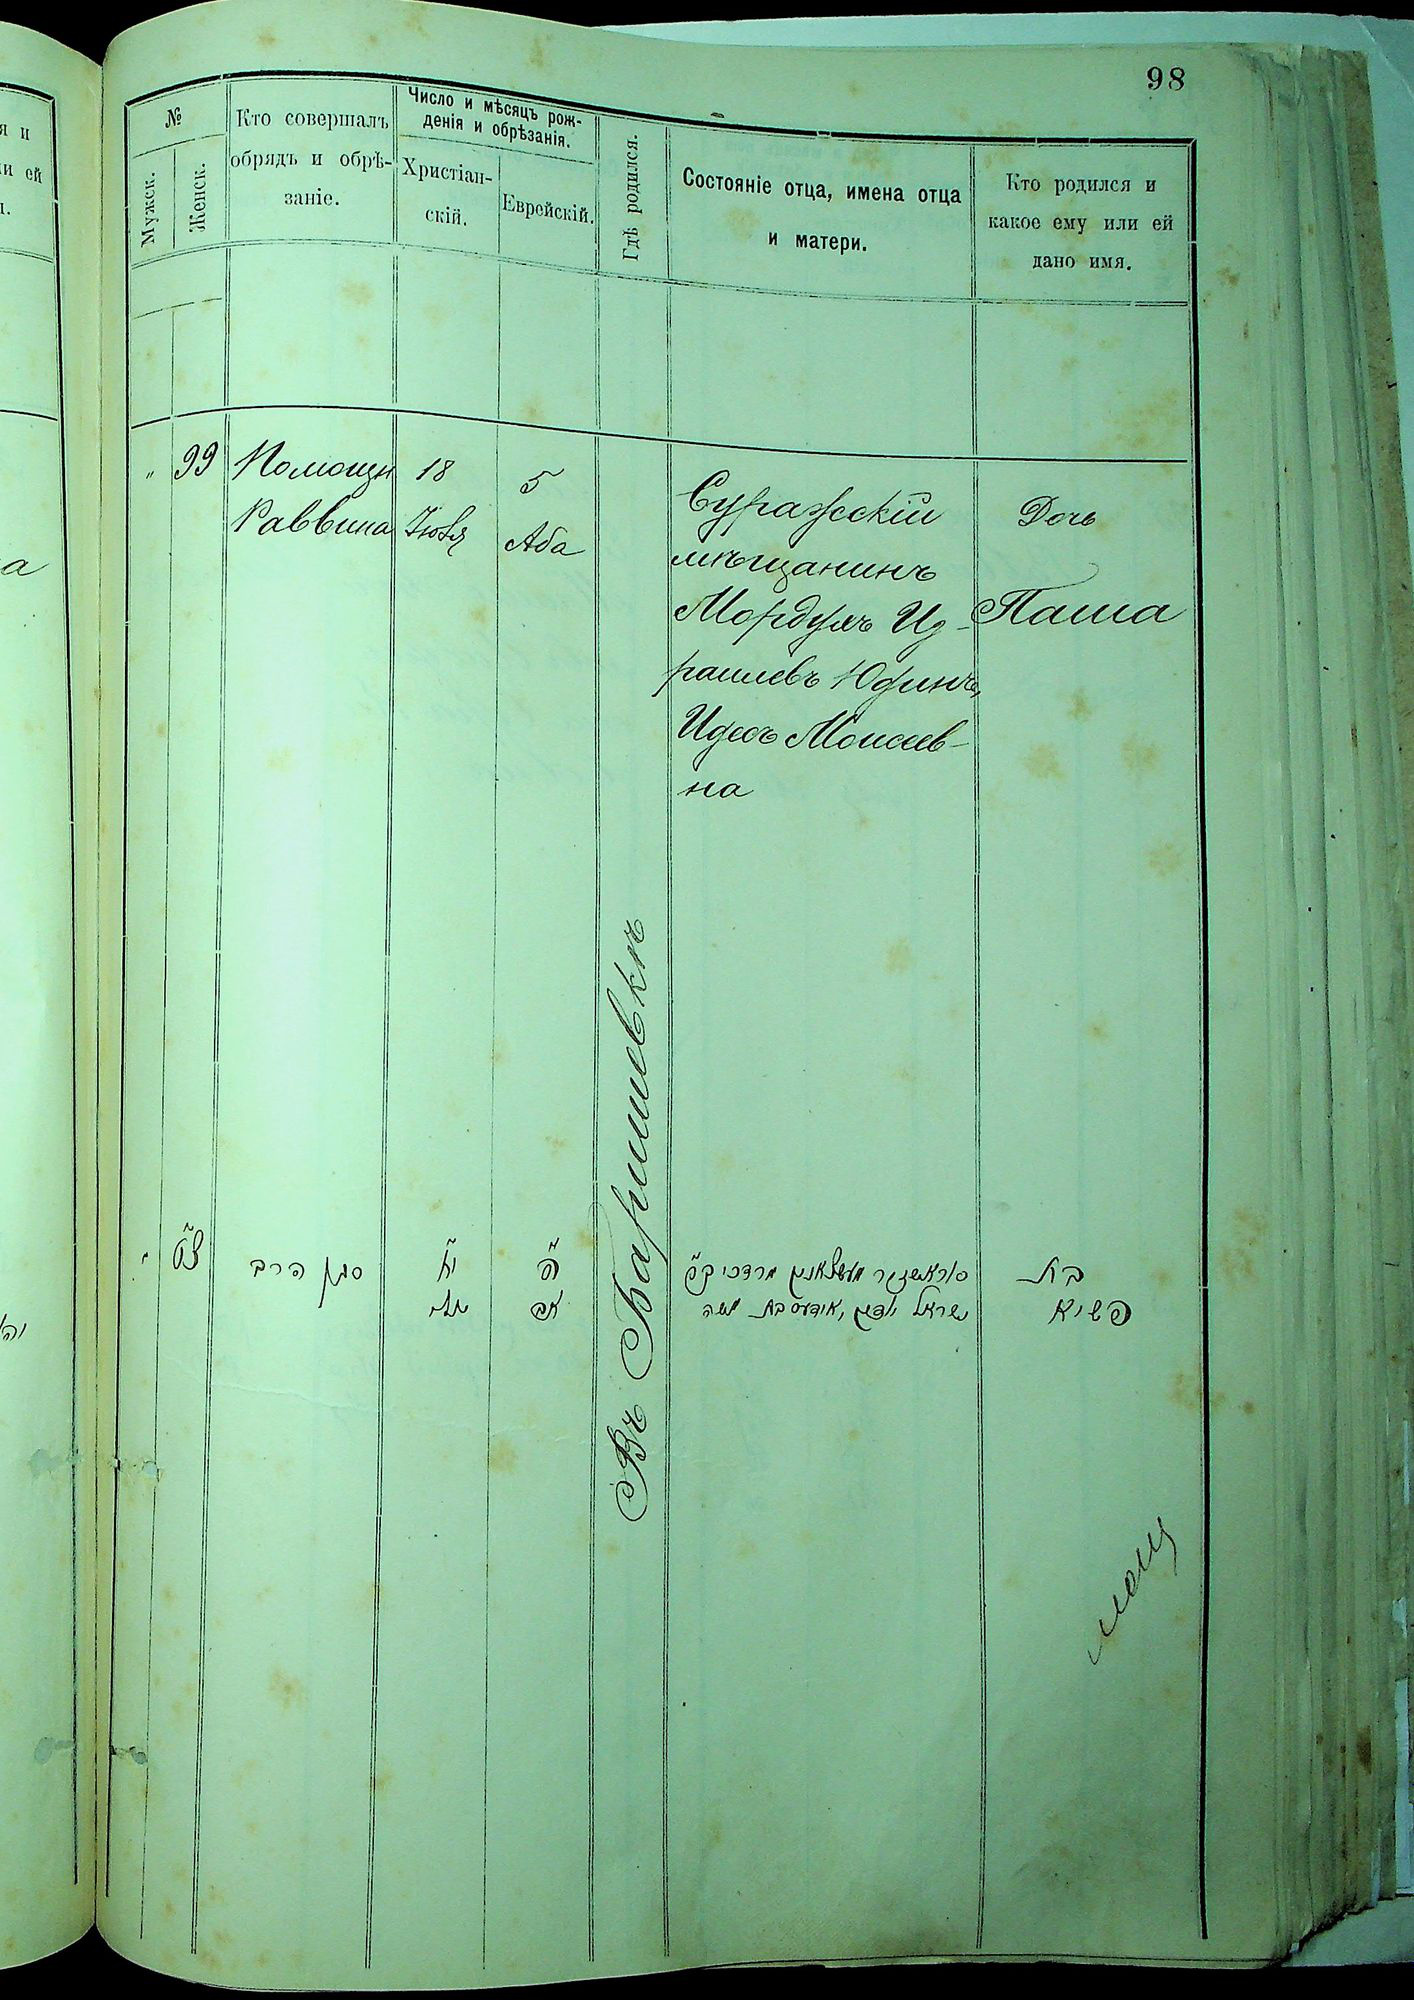 98
№
Мужск.
Женск.
Кто совершалъ
обрядъ и обрѣ-
заніе.
Число и мѣсяцъ рож-
денія и обрѣзанія.
Христіан-
скій.
Еврейскій.
Гдѣ родился.
Состояніе отца, имена отца
и матери.
Кто родился и
какое ему или ей
дано имя.
" 99
Помощн
Раввина
18
Іюля
5
Аба
Въ Баришевкѣ
Суражскій
мѣщанинъ
Мордухъ Из-
раилевъ Юдинъ,
Идесъ Моисеев-
на
Дочь
Паша
צט
סגן הרב
יח
יולי
ה
אב
מרדכי
ישראל יודין, אידעס בת משה
בת
פשיא